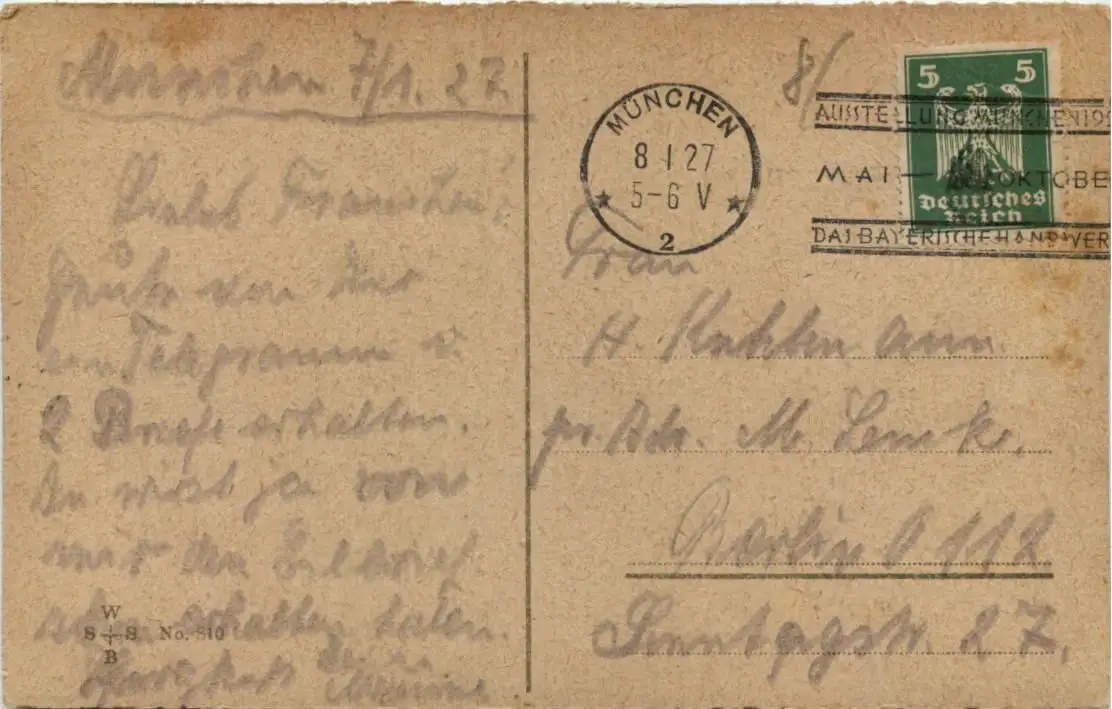 München 7/1. 27
Liebes Frauchen!
Habe von Dir
ein Telegramm u.
2 Briefe erhalten.
Du wirst ja von
mir den Eilbrief
schon erhalten haben.
Herzlichst
W
S S No. 810
B
MÜNCHEN
8 1 27
5-6 V
2
8/
5 5
Deutsches
Reich
AUSSTELLUNG MÜNCHEN 19
MAI — OKTOBE
DAS BAYERISCHE HANDWER
Frau
H.
pr. Adr. M. Lemke,
Berlin O 112
Sonntagstr. 27,